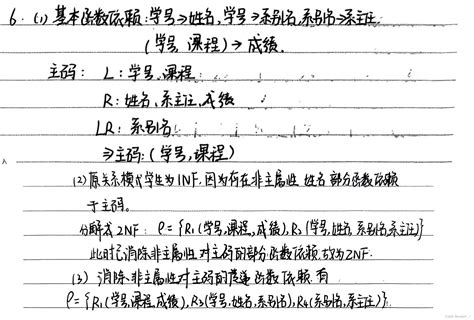 6. (1) 基本函数依赖: 学号→姓名, 学号→系别名, 系别名→系主任.
(学号, 课程)→成绩.
主码: L: 学号, 课程
R: 姓名、系主任、成绩
LR: 系别名
⇒主码: (学号, 课程)
(2) 原关系模式学生为1NF. 因为存在非主属性 姓名 部分函数依赖
于主码.
分解成2NF: ρ={R₁(学号,课程,成绩), R₂(学号,姓名,系别名,系主任)}
此时已消除非主属性对主码的部分函数依赖, 故为2NF.
(3) 消除非主属性对主码的传递函数依赖, 有
ρ={R₁(学号,课程,成绩), R₃(学号,姓名,系别名), R₄(系别名,系主任)}.